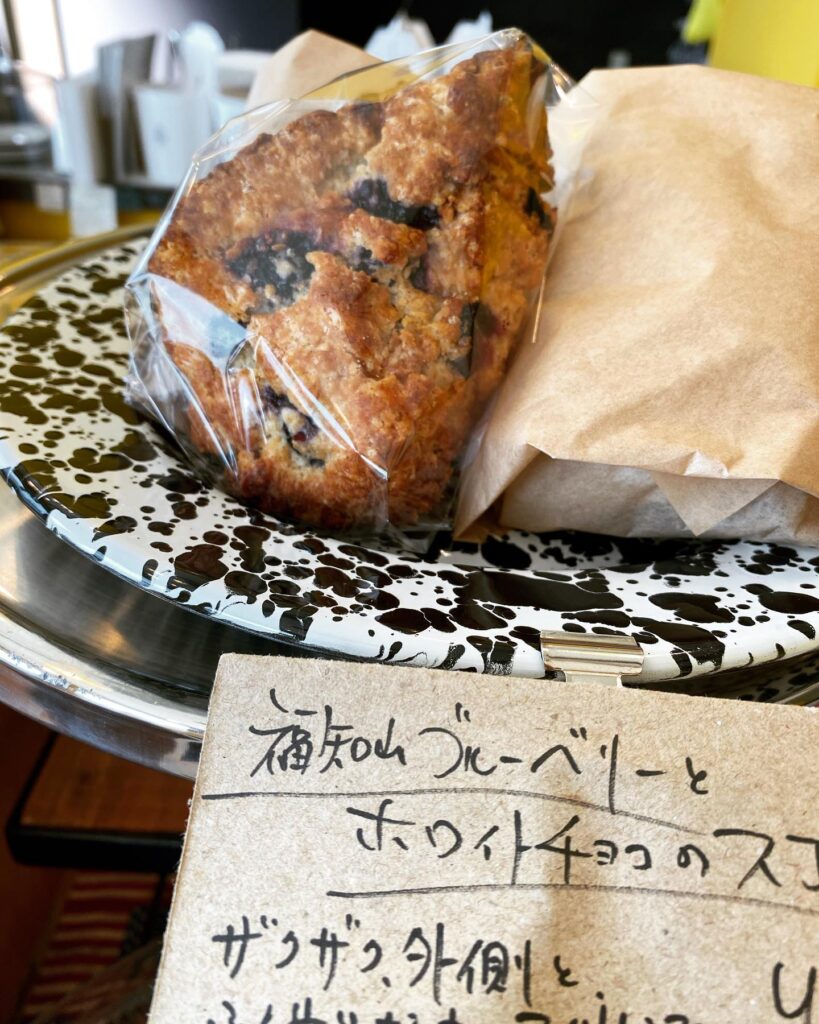 福知山ブルーベリーと
ホワイトチョコのスコ
ザクザク、外側と、